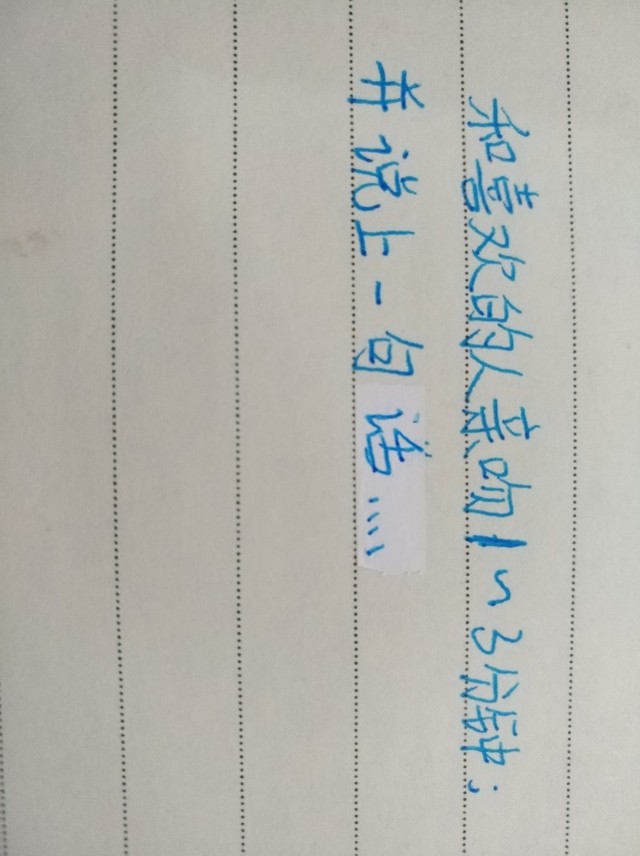 和喜欢的人亲吻1~3分钟:
并说上一句话....